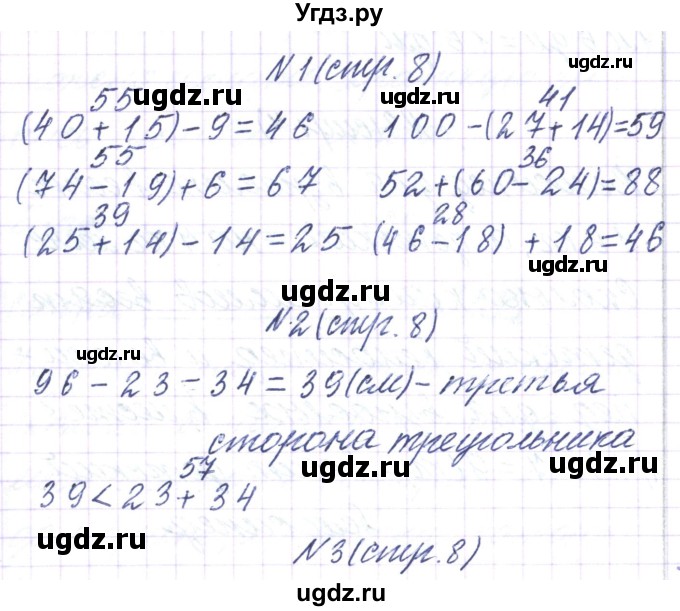 Угдз.ру
N 1 (стр. 8)
55 41
(40 + 15) - 9 = 46 100 - (27 + 14) = 59
55 36
(74 - 19) + 6 = 67 52 + (60 - 24) = 88
39 28
(25 + 14) - 14 = 25 (46 - 18) + 18 = 46
N 2 (стр. 8)
96 - 23 - 34 = 39 (см) - третья
сторона треугольника
57
39 < 23 + 34
N 3 (стр. 8)
ugdz.ru
ugdz.ru
ugdz.ru
ugdz.ru
ugdz.ru
ugdz.ru
ugdz.ru
ugdz.ru
ugdz.ru
ugdz.ru
ugdz.ru